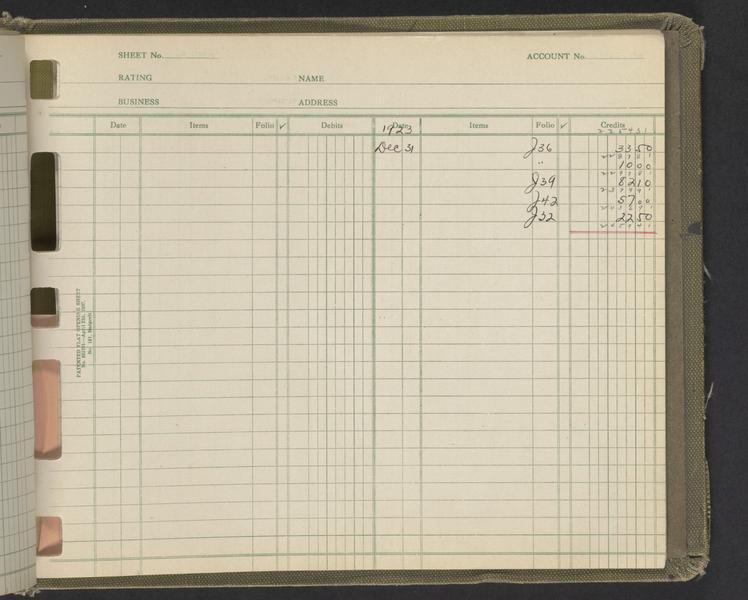 SHEET No.
ACCOUNT No.
RATING NAME
BUSINESS ADDRESS
Date Items Folio ✓ Debits Date Items Folio ✓ Credits
1923
225431
Dec 31 J36 3350
228781
" 1000
229781
J39 8210
237991
J42 5700
J52 2250
265941
PATENTED FLAT OPENING SHEET